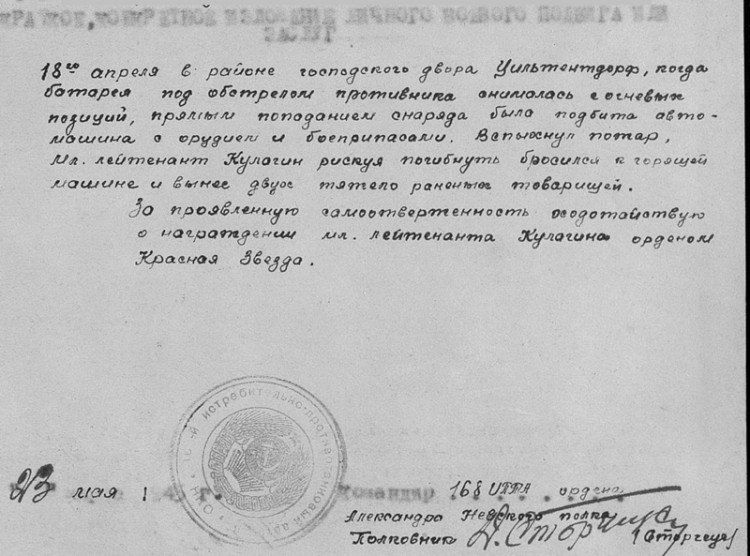 КРАТКОЕ, КОНКРЕТНОЕ ИЗЛОЖЕНИЕ ЛИЧНОГО БОЕВОГО ПОДВИГА ИЛИ
ЗАСЛУГ
18го апреля в районе господского двора Уильтентдорф, когда
батарея под обстрелом противника снималась с огневых
позиций, прямым попаданием снаряда была подбита авто-
машина с орудием и боеприпасами. Вспыхнул пожар,
мл. лейтенант Кулагин рискуя погибнуть бросился к горящей
машине и вынес двух тяжело раненых товарищей.
За проявленную самоотверженность ходотайствую
о награждении мл. лейтенанта Кулагина орденом
Красная Звезда.
истребительно-противотанковый
23 мая 145 г.
Командир 168 ИПТА ордена
Александра Невского полка
Полковник